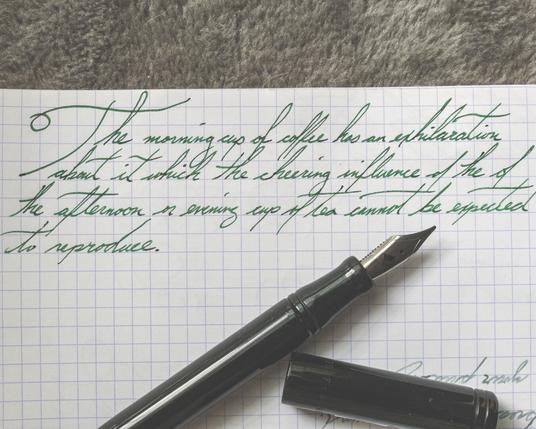 The morning cup of coffee has an exhilaration
about it which the cheering influence of the of
the afternoon or evening cup of tea cannot be expected
to reproduce.